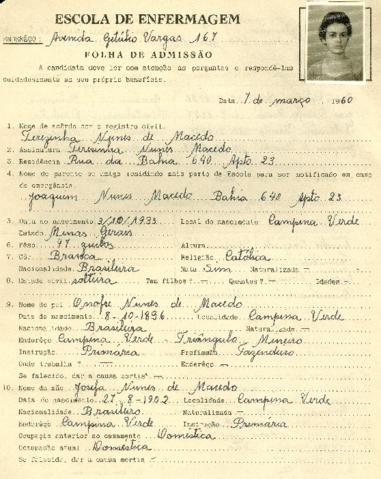 ESCOLA DE ENFERMAGEM
ENDERÊÇO: Avenida Getúlio Vargas 167
FOLHA DE ADMISSÃO
A candidata deve ler com atenção as perguntas e respondê-las
cuidadosamente ao seu próprio benefício.
Data, 7 de março, 1960
1. Nome de acôrdo com o registro civil.
Terezinha Nunes de Macedo
2. Assinatura Terezinha Nunes Macedo
3. Residência Rua da Bahia 640 Apto. 23
4. Nome do parente ou amigo residindo mais perto da Escola para ser notificado em caso
de emergência.
Joaquim Nunes Macedo Bahia 640 Apto. 23
5. Data do nascimento 3/10/1933 Local do nascimento Campina Verde
Estado Minas Gerais
6. Pêso: 47 quilos Altura
7. Côr: Branca Religião Católica
Nacionalidade Brasileira Nata Sim Naturalizada —
8. Estado civil solteira Tem filhos? — Quantos? — Idades —
9. Nome do pai Onofre Nunes de Macedo
Data do nascimento 8-10-1896 Localidade Campina Verde
Nacionalidade Brasileira Naturalizado
Enderêço Campina Verde - Triângulo Mineiro
Instrução Primária Profissão Fazendeiro
Onde trabalha? — Enderêço —
Se falecido, dar a causa mortis —
10. Nome da mãe Josefa Nunes de Macedo
Data do nascimento 27-8-1902 Localidade Campina Verde
Nacionalidade Brasileira Naturalizada —
Enderêço Campina Verde Instrução Primária
Ocupação anterior ao casamento Doméstica
Ocupação atual Doméstica
Se falecida, dar a causa mortis —